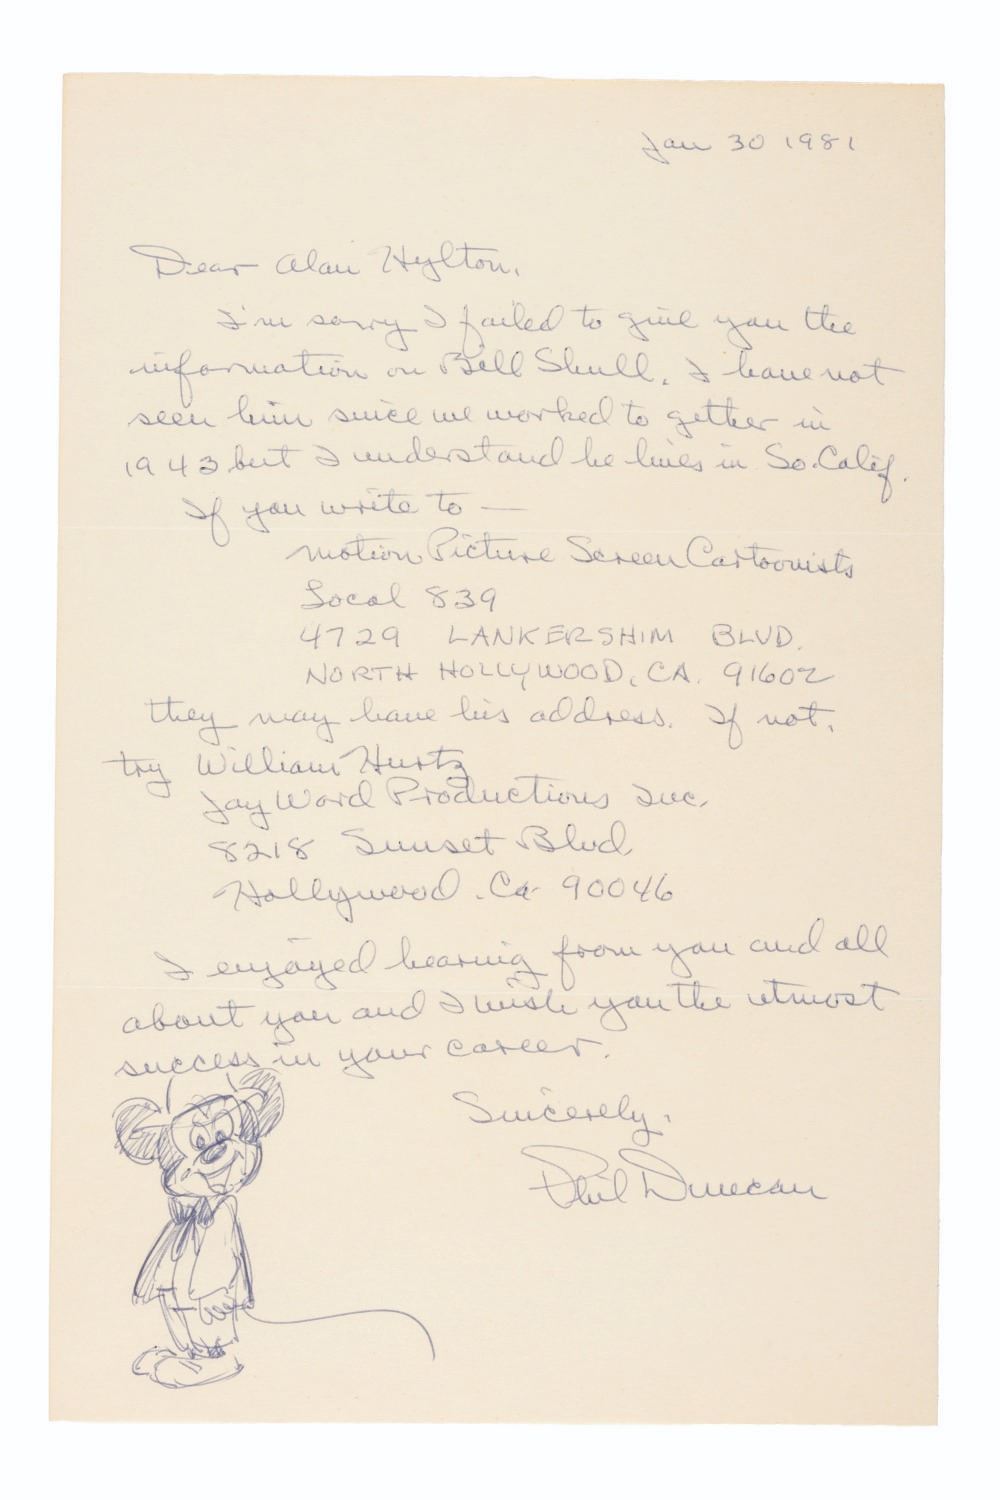 Jan 30 1981
Dear Alan Hylton,
I'm sorry I failed to give you the
information on Bill Shull. I have not
seen him since we worked to gether in
1943 but I understand he lives in So. Calif.
If you write to —
Motion Picture Screen Cartoonists
Local 839
4729 LANKERSHIM BLVD.
NORTH HOLLYWOOD, CA. 91602
they may have his address. If not,
try William Hurtz
Jay Ward Productions Inc.
8218 Sunset Blvd
Hollywood. Ca 90046
I enjoyed hearing from you and all
about you and I wish you the utmost
success in your career.
Sincerely,
Phil Duncan